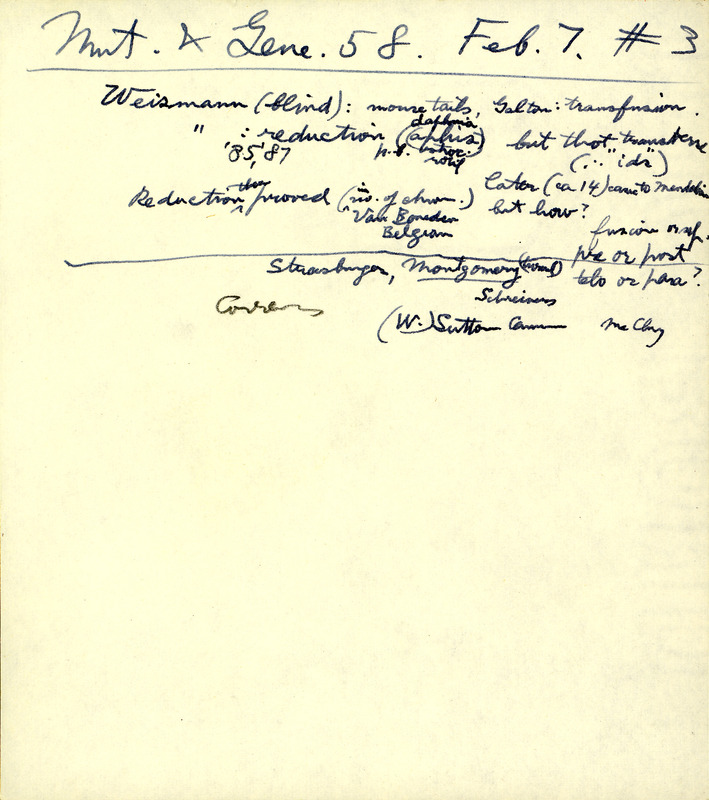 Mut. & Gene. 58. Feb. 7. #3
Weismann (blind): mouse tails, Galton: transfusion.
daphnia
" : reduction (aphis) but thot transverse
'85, '87 p.b. rotif (∴ "ids")
Reduction then proved (in no. of chrom.) later (ca 14) came to Mendelism
Van Beneden but how?
Belgian fusion or sep.
pre or post
Strasburger, Montgomery telo or para?
Schreiners
Correns
(W.) Sutton Cannon McClung